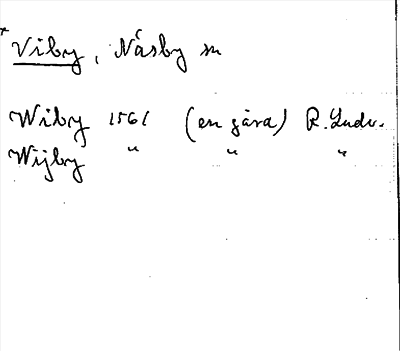 * Viby, Näsby sn
Wiby 1561 (en gård) R. Ludv.
Wijby " " "